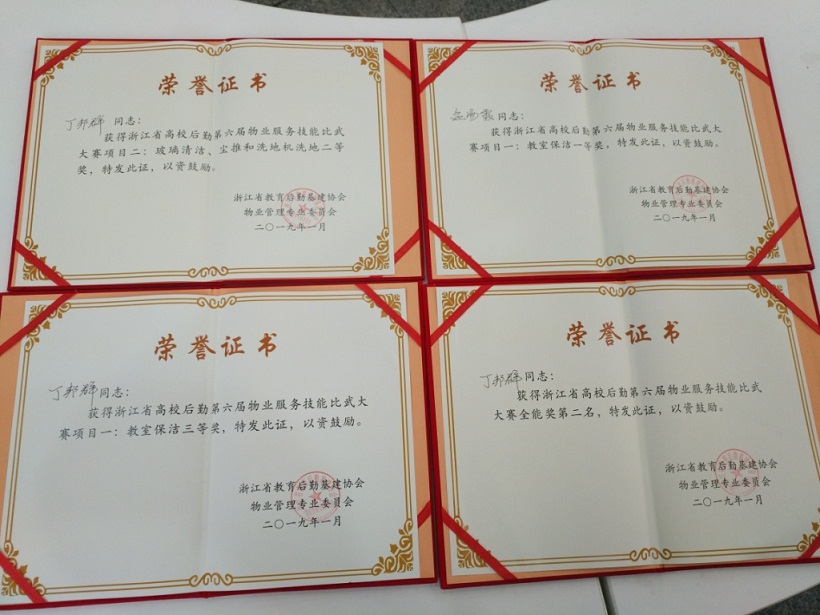 荣誉证书
丁邦辉 同志：
获得浙江省高校后勤第六届物业服务技能比武
大赛项目二：玻璃清洁、尘推和洗地机洗地二等
奖，特发此证，以资鼓励。
浙江省教育后勤基建协会
物业管理专业委员会
二〇一九年一月
荣誉证书
同志：
获得浙江省高校后勤第六届物业服务技能比武大
赛项目一：教室保洁一等奖，特发此证，以资鼓励。
浙江省教育后勤基建协会
物业管理专业委员会
二〇一九年一月
荣誉证书
丁邦辉 同志：
获得浙江省高校后勤第六届物业服务技能比武大
赛项目一：教室保洁三等奖，特发此证，以资鼓励。
浙江省教育后勤基建协会
物业管理专业委员会
二〇一九年一月
荣誉证书
丁邦辉 同志：
获得浙江省高校后勤第六届物业服务技能比武
大赛全能奖第二名，特发此证，以资鼓励。
浙江省教育后勤基建协会
物业管理专业委员会
二〇一九年一月